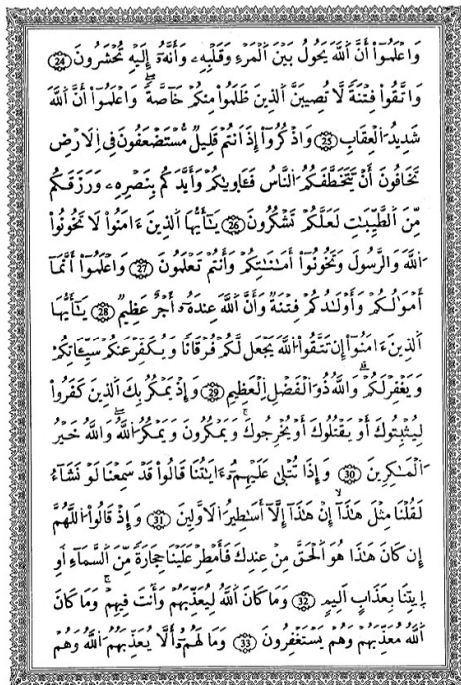 وَاعْلَمُوٓا۟ أَنَّ اَللَّهَ يَحُولُ بَيْنَ اَلْمَرْءِ وَقَلْبِهِۦ وَأَنَّهُۥٓ إِلَيْهِ تُحْشَرُونَ 24
وَاتَّقُوا۟ فِتْنَةً لَّا تُصِيبَنَّ اَلَّذِينَ ظَلَمُوا۟ مِنكُمْ خَآصَّةً ۖ وَاعْلَمُوٓا۟ أَنَّ اَللَّهَ
شَدِيدُ اُلْعِقَابِ 25 وَاذْكُرُوٓا۟ إِذَ اَنتُمْ قَلِيلٌ مُّسْتَضْعَفُونَ فِے اِلَارْضِ
تَخَافُونَ أَنْ يَّتَخَطَّفَكُمُ اُلنَّاسُ فَـَٔاوۭيٰكُمْ وَأَيَّدَكُم بِنَصْرِهِۦ وَرَزَقَكُم
مِّنَ اَلطَّيِّبَٰتِ لَعَلَّكُمْ تَشْكُرُونَ 26 يَـٰٓأَيُّهَا اَلَّذِينَ ءَامَنُوا۟ لَا تَخُونُوا۟
اُللَّهَ وَالرَّسُولَ وَتَخُونُوٓا۟ أَمَٰنَٰتِكُمْ وَأَنتُمْ تَعْلَمُونَ 27 وَاعْلَمُوٓا۟ أَنَّمَآ
أَمْوَٰلُكُمْ وَأَوْلَٰدُكُمْ فِتْنَةٌ وَأَنَّ اَللَّهَ عِندَهُۥٓ أَجْرٌ عَظِيمٌ 28 يَـٰٓأَيُّهَا
اَلَّذِينَ ءَامَنُوٓا۟ إِن تَتَّقُوا۟ اُللَّهَ يَجْعَل لَّكُمْ فُرْقَانًا وَيُكَفِّرْ عَنكُمْ سَيِّـَٔاتِكُمْ
وَيَغْفِرْ لَكُمْ ۗ وَاللَّهُ ذُو اُلْفَضْلِ اِلْعَظِيمِ 29 وَإِذْ يَمْكُرُ بِكَ اَلَّذِينَ كَفَرُوا۟
لِيُثْبِتُوكَ أَوْ يَقْتُلُوكَ أَوْ يُخْرِجُوكَ ۚ وَيَمْكُرُونَ وَيَمْكُرُ اُللَّهُ ۖ وَاللَّهُ خَيْرُ
اُلْمَٰكِرِينَ 30 وَإِذَا تُتْلَىٰ عَلَيْهِمُۥٓ ءَايَٰتُنَا قَالُوا۟ قَدْ سَمِعْنَا لَوْ نَشَآءُ
لَقُلْنَا مِثْلَ هَٰذَآ ۙ إِنْ هَٰذَآ إِلَّآ أَسَٰطِيرُ اُلَاوَّلِينَ 31 وَإِذْ قَالُوا۟ اُللَّهُمَّ
إِن كَانَ هَٰذَا هُوَ اَلْحَقَّ مِنْ عِندِكَ فَأَمْطِرْ عَلَيْنَا حِجَارَةً مِّنَ اَلسَّمَآءِ اَوِ
اِيتِنَا بِعَذَابٍ اَلِيمٍ 32 وَمَا كَانَ اَللَّهُ لِيُعَذِّبَهُمْ وَأَنتَ فِيهِمْ ۚ وَمَا كَانَ
اَللَّهُ مُعَذِّبَهُمْ وَهُمْ يَسْتَغْفِرُونَ 33 وَمَا لَهُمُۥٓ أَلَّا يُعَذِّبَهُمُ اُللَّهُ وَهُمْ